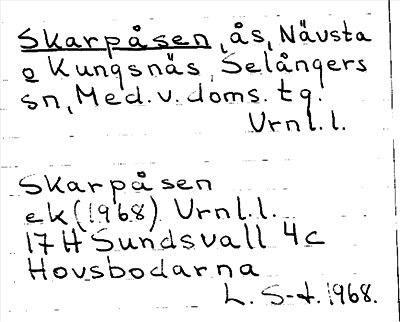 Skarpåsen, ås, Nävsta
o Kungsnäs, Selångers
sn, Med. v. doms. tg.
Vrnl.l.
Skarpåsen
ek (1968) Vrnl.l.
17 H Sundsvall 4c
Hovsbodarna
L. S-t. 1968.